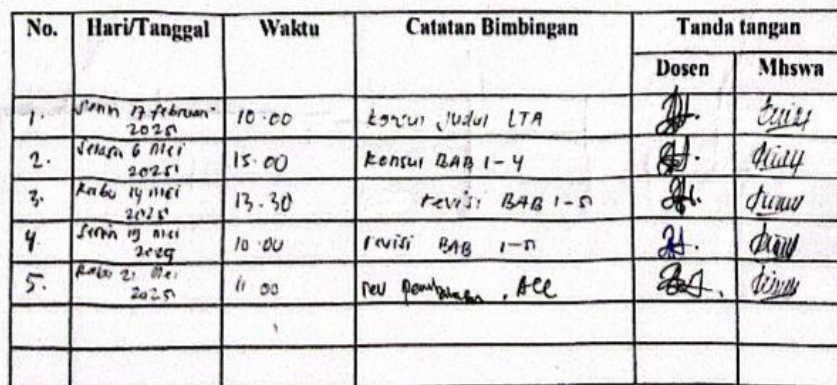 No. Hari/Tanggal Waktu Catatan Bimbingan Tanda tangan
Dosen Mhswa
1. Senin 17 februari 2025 10.00 konsul Judul LTA
2. Selasa 6 Mei 2025 15.00 Konsul BAB 1-4
3. Rabu 14 Mei 2025 13.30 revisi BAB 1-5
4. Senin 19 Mei 10.00 revisi BAB 1-5
5. Rabu 21 Mei 2025 11.00 rev pembahasan, Acc